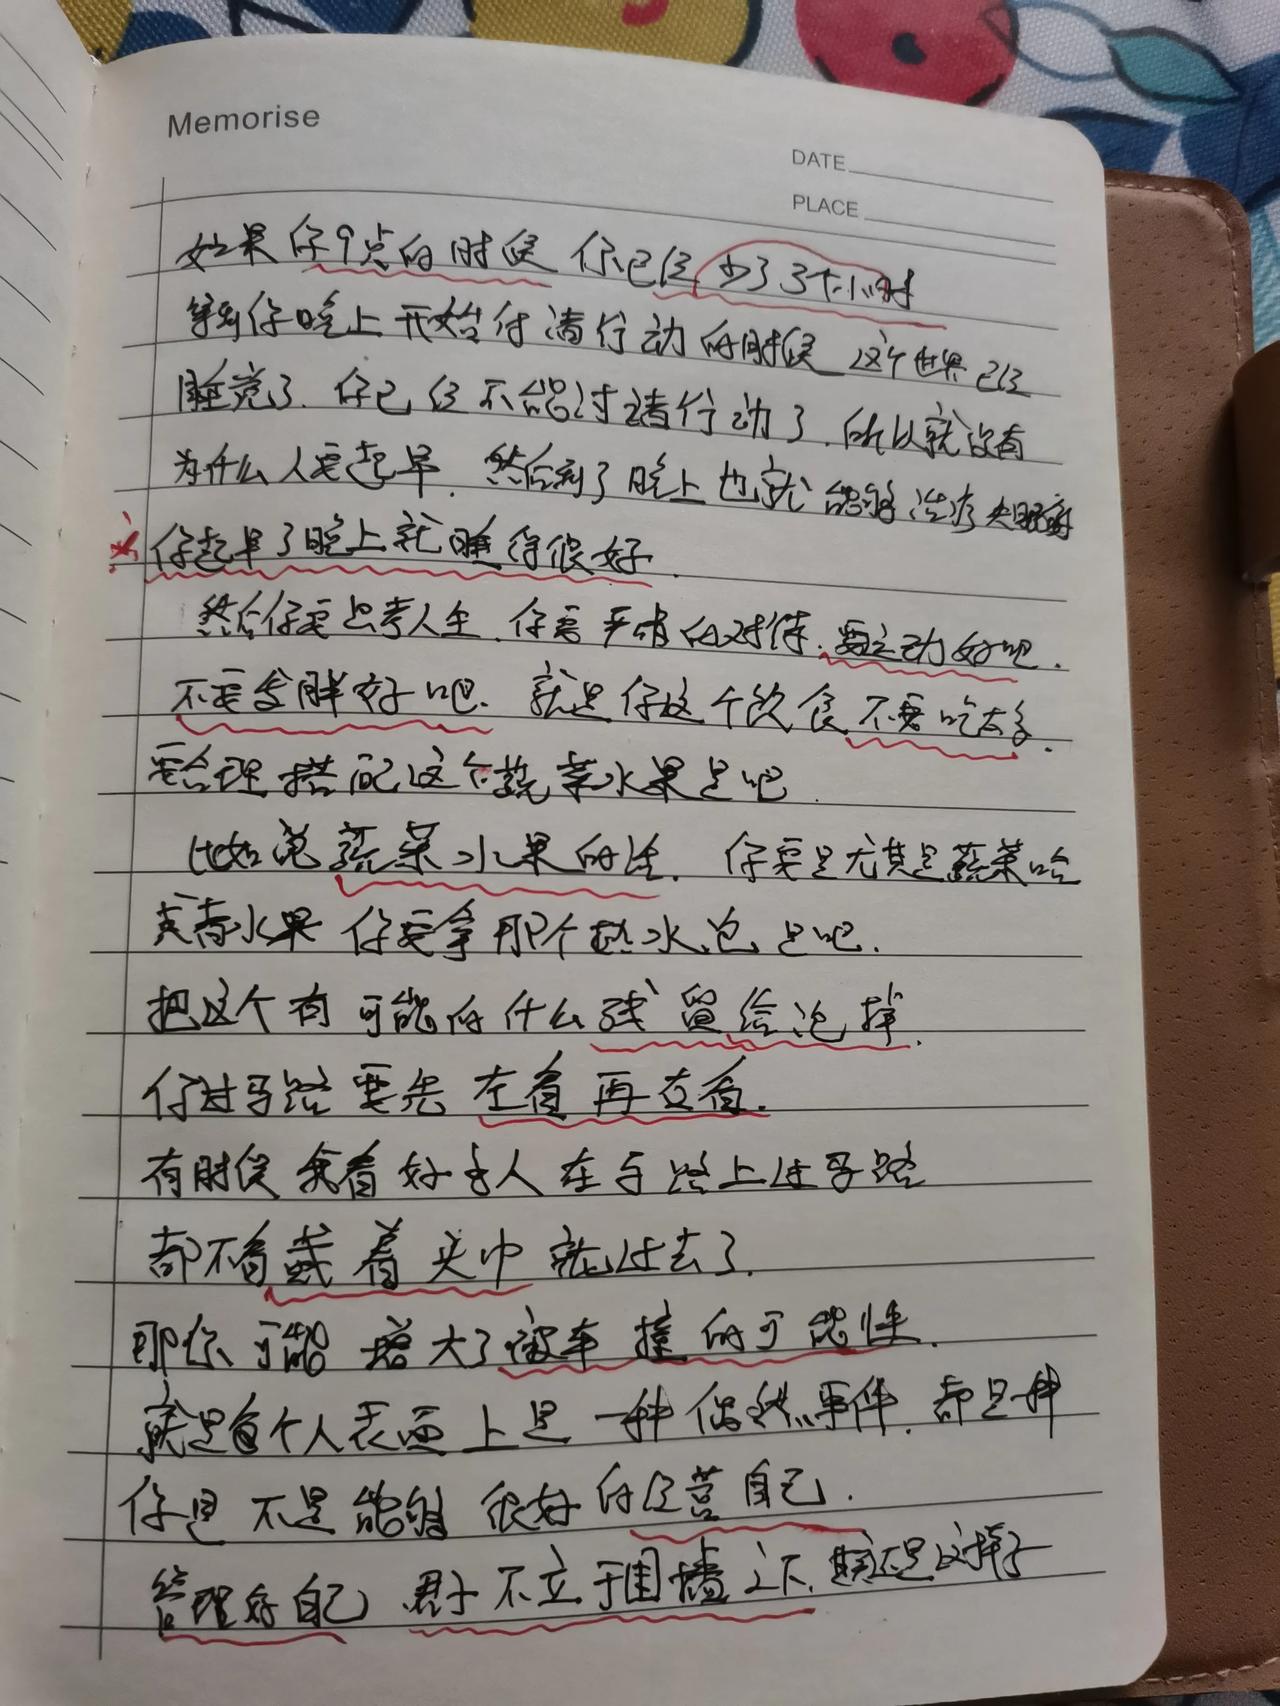 Memorise
DATE
PLACE
如果你9点的时候 你已经少了3个小时
等到你晚上开始付清行动的时候 这个世界已经
睡觉了.你已经不能过清行动了.所以就没有
为什么人要起早.然后到了晚上也就能够治疗失眠
你起早了晚上就睡得很好.
然后你要思考人生.你要严肃的对待.要运动好吧.
不要发胖好吧.就是你这个饮食不要吃太多.
要合理搭配这个蔬菜水果是吧.
比如说蔬菜水果的话.你要是尤其是蔬菜哈
或者水果 你要拿那个热水泡是吧.
把这个有可能的什么残留给泡掉.
你过马路要先左看再右看.
有时候我看好多人在马路上过马路
都不看戴着头巾就过去了.
那你可能增大了被车撞的可能性.
就是每个人表面上是一种偶然事件.都是一种
你是不是能够很好的经营自己.
管理好自己 君子不立于围墙之下.是这样子